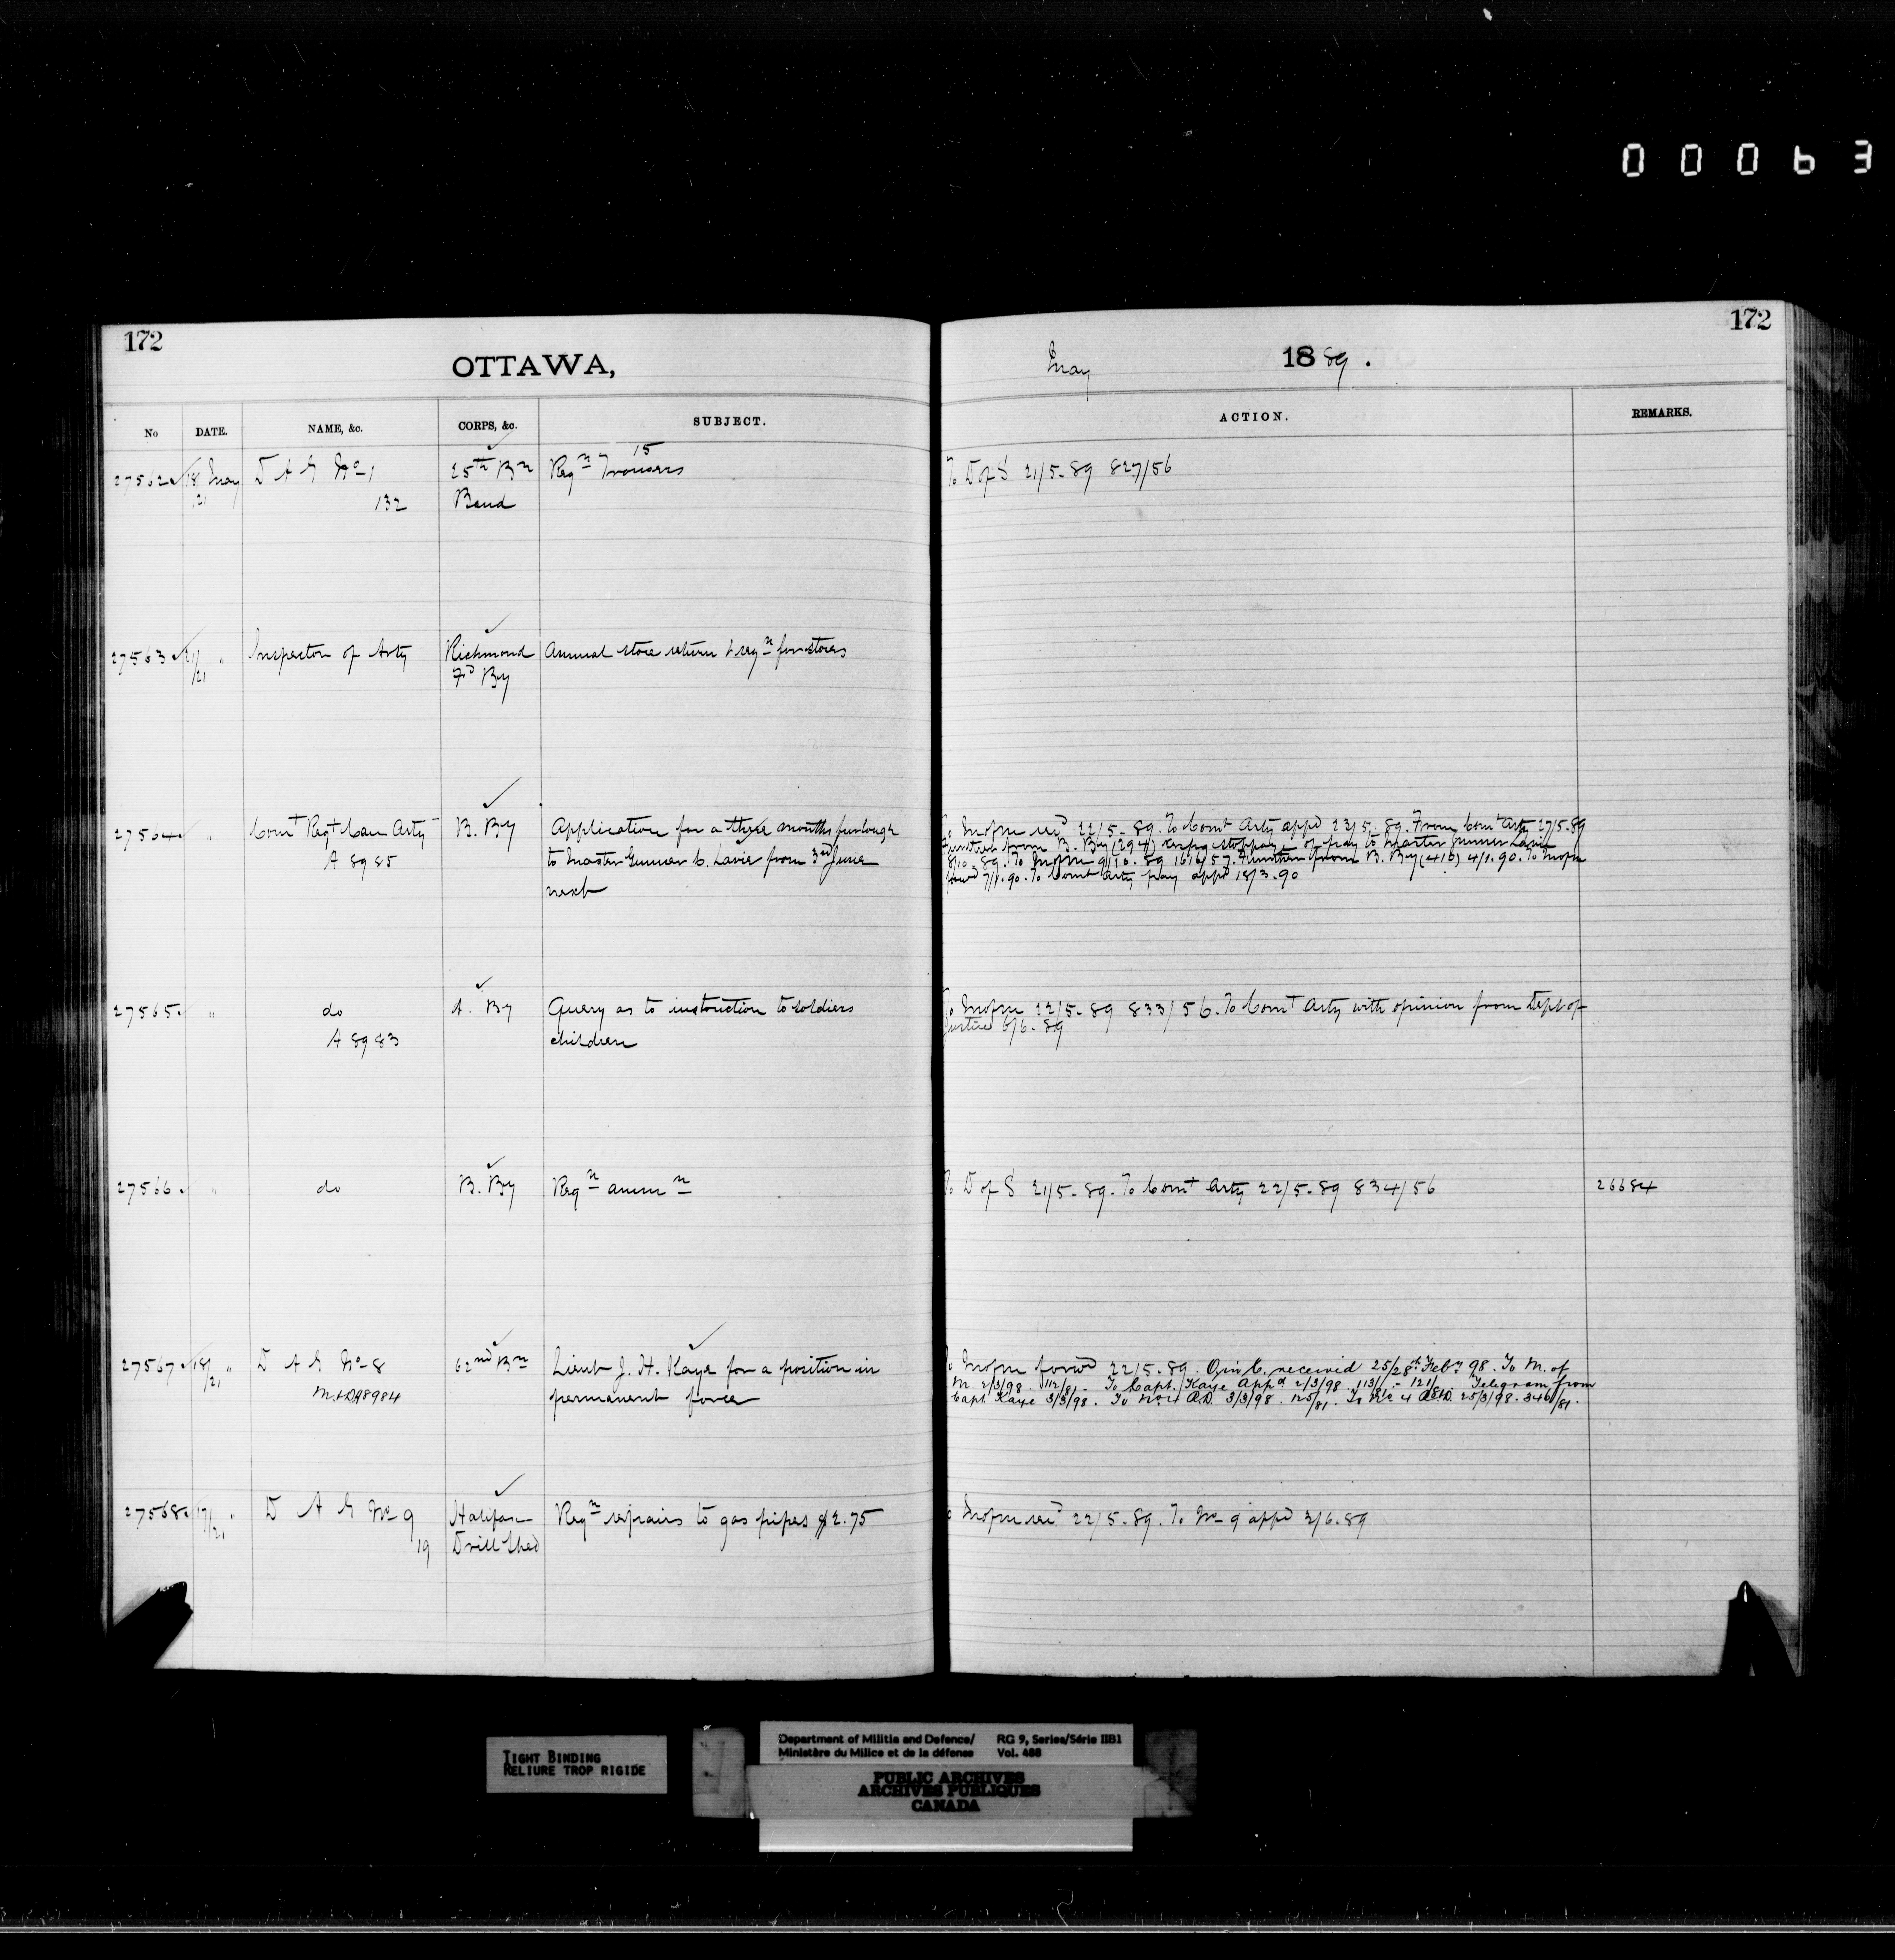 00063
172
OTTAWA,
172
May 1889.
No DATE. NAME, &c. CORPS, &c. SUBJECT.
ACTION. REMARKS.
27562 18 May D A G No 1 25th Bn Reqn Trousers 15
21 132 Band
To D of S 21/5-89 827/56
27563 21/21 " Inspector of Arty Richmond Annual store return & reqn for stores
Fd By
27564 " Comt Regt Can Arty B. By Application for a three months furlough
A 8985 to Master Gunner C. Lavie from 3rd June
next
To Mofm recd 22/5-89. To Comt Arty appd 23/5-89. From Comt Arty 27/5-89
Further from B. By (294) respg stoppage of pay to Master Gunner Lavie
8/10-89. To Mofm 9/10-89 1616/57. Further from B. By (416) 4/1-90. To Mofm
forwd 7/1-90. To Comt Arty pay appd 18/3-90
27565 " do A. By Query as to instruction to soldiers
A 8983 children
To Mofm 22/5-89 833/56. To Comt Arty with opinion from Dept of
Justice 6/6-89
27566 " do B. By Reqn ammn
To D of S 21/5-89. To Comt Arty 22/5-89 834/56 26684
27567 18/21 " D A G No 8 62nd Bn Lieut J. H. Kaye for a position in
A8984 permanent force
To Mofm forwd 22/5-89. received 25/28th Feby 98. To M. of
M. 2/3/98. 112/81. To Capt. Kaye Appd 2/3/98. 113/81 - 121/81. Telegram from
Capt. Kaye 3/3/98. To No 4 3/3/98. 125/81. To No 4 25/3/98. 346/81.
27568 17/21 " D A G No 9 Halifax Reqn repairs to gas pipes $2.75
19 Drill Shed
To Mofm recd 22/5-89. To No 9 appd 3/6-89
TIGHT BINDING
RELIURE TROP RIGIDE
Department of Militia and Defence/ RG 9, Series/Série IIB1
Ministère du Milice et de la défense Vol. 488
PUBLIC ARCHIVES
ARCHIVES PUBLIQUES
CANADA